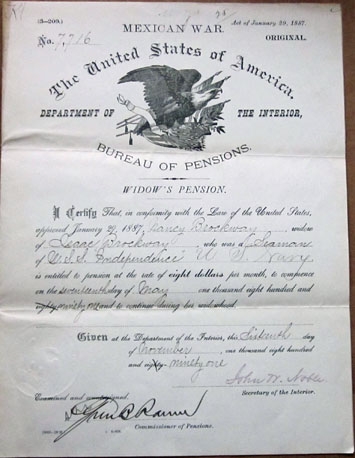 (3-209.) MEXICAN WAR. Act of January 29, 1887.
No. 7,716 ORIGINAL.
The United States of America,
DEPARTMENT OF THE INTERIOR,
BUREAU OF PENSIONS.
WIDOW'S PENSION.
I Certify That, in conformity with the Law of the United States,
approved January 29, 1887, Nancy Brockway widow
of Isaac Brockway, who was a Seaman
of U.S.S. Independence U S Navy
is entitled to pension at the rate of eight dollars per month, to commence
on the seventeenth day of May one thousand eight hundred and
ninety one and to continue during her widowhood.
Given at the Department of the Interior, this Sixteenth day
of November, one thousand eight hundred
and eighty- ninety one
John W. Noble
Secretary of the Interior.
Examined and countersigned,
Commissioner of Pensions.